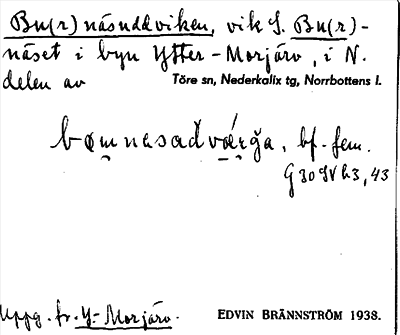 Bu(r)näsuddviken, vik S. Bu(r)-
näset i byn Ytter-Morjärv, i N.
delen av Töre sn, Nederkalix tg, Norrbottens l.
bf. fem.
G 30 IV h3, 43
Uppg. fr. Y-Morjärv. EDVIN BRÄNNSTRÖM 1938.